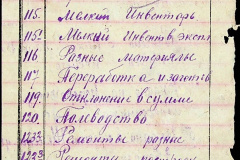 115. Мелкий Инвентарь.
115а Мелкий Инвент в экспл
116 Разные материалы
117 Переработка и заготов
119. Отклонение в сумме
120. Полеводство
1233. Ремонтые разные
1223